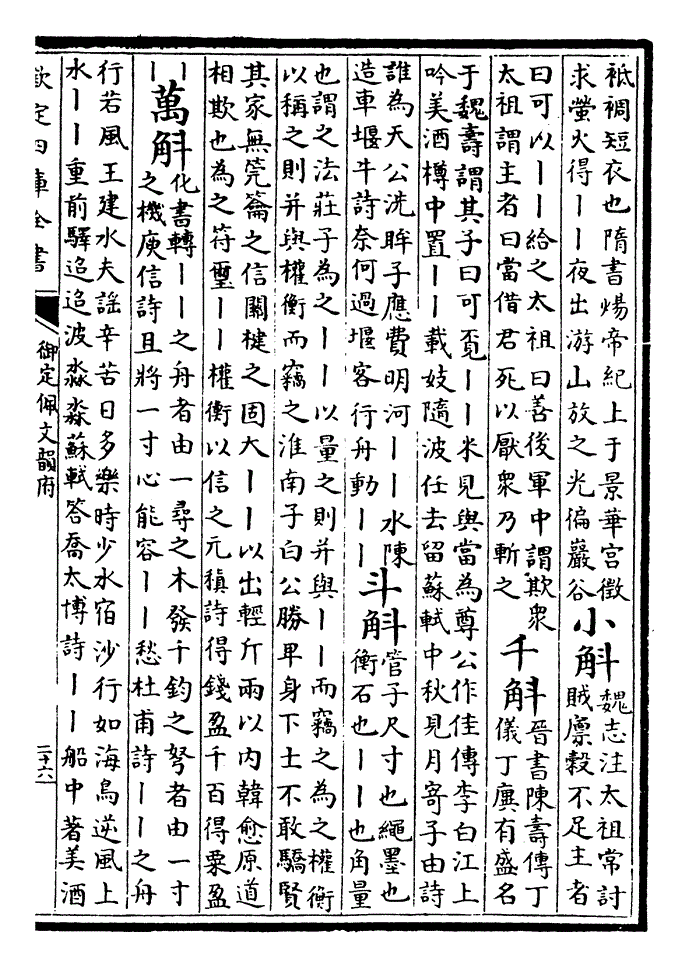 袛裯短衣也隋書煬帝紀上于景華宮徵
求螢火得丨丨夜出游山放之光徧巖谷
小斛
魏志注太祖常討
賊廪糓不足主者
曰可以丨丨給之太祖曰善後軍中謂欺衆
太祖謂主者曰當借君死以厭衆乃斬之
千斛
晉書陳壽傳丁
儀丁廙有盛名
于魏壽謂其子曰可覔丨丨米見與當為尊公作佳傳李白江上
吟美酒樽中置丨丨載妓隨波任去留蘇軾中秋見月寄子由詩
誰為天公洗眸子應費明河丨丨水陳
造車堰牛詩奈何過堰客行舟動丨丨
斗斛
管子尺寸也繩墨也
衡石也丨丨也角量
也謂之法莊子為之丨丨以量之則并與丨丨而竊之為之權衡
以稱之則并與權衡而竊之淮南子白公勝卑身下士不敢驕賢
其家無筦籥之信關楗之固大丨丨以出輕斤兩以内韓愈原道
相欺也為之符璽丨丨權衡以信之元稹詩得錢盈千百得粟盈
丨
丨
萬斛
化書轉丨丨之舟者由一尋之木發千鈞之弩者由一寸
之機庾信詩且將一寸心能容丨丨愁杜甫詩丨丨之舟
行若風王建水夫謡辛苦日多樂時少水宿沙行如海鳥逆風上
水丨丨重前驛迢迢波淼淼蘇軾答喬太博詩丨丨船中著美酒
欽定四庫全書
御定佩文韻府
二十六